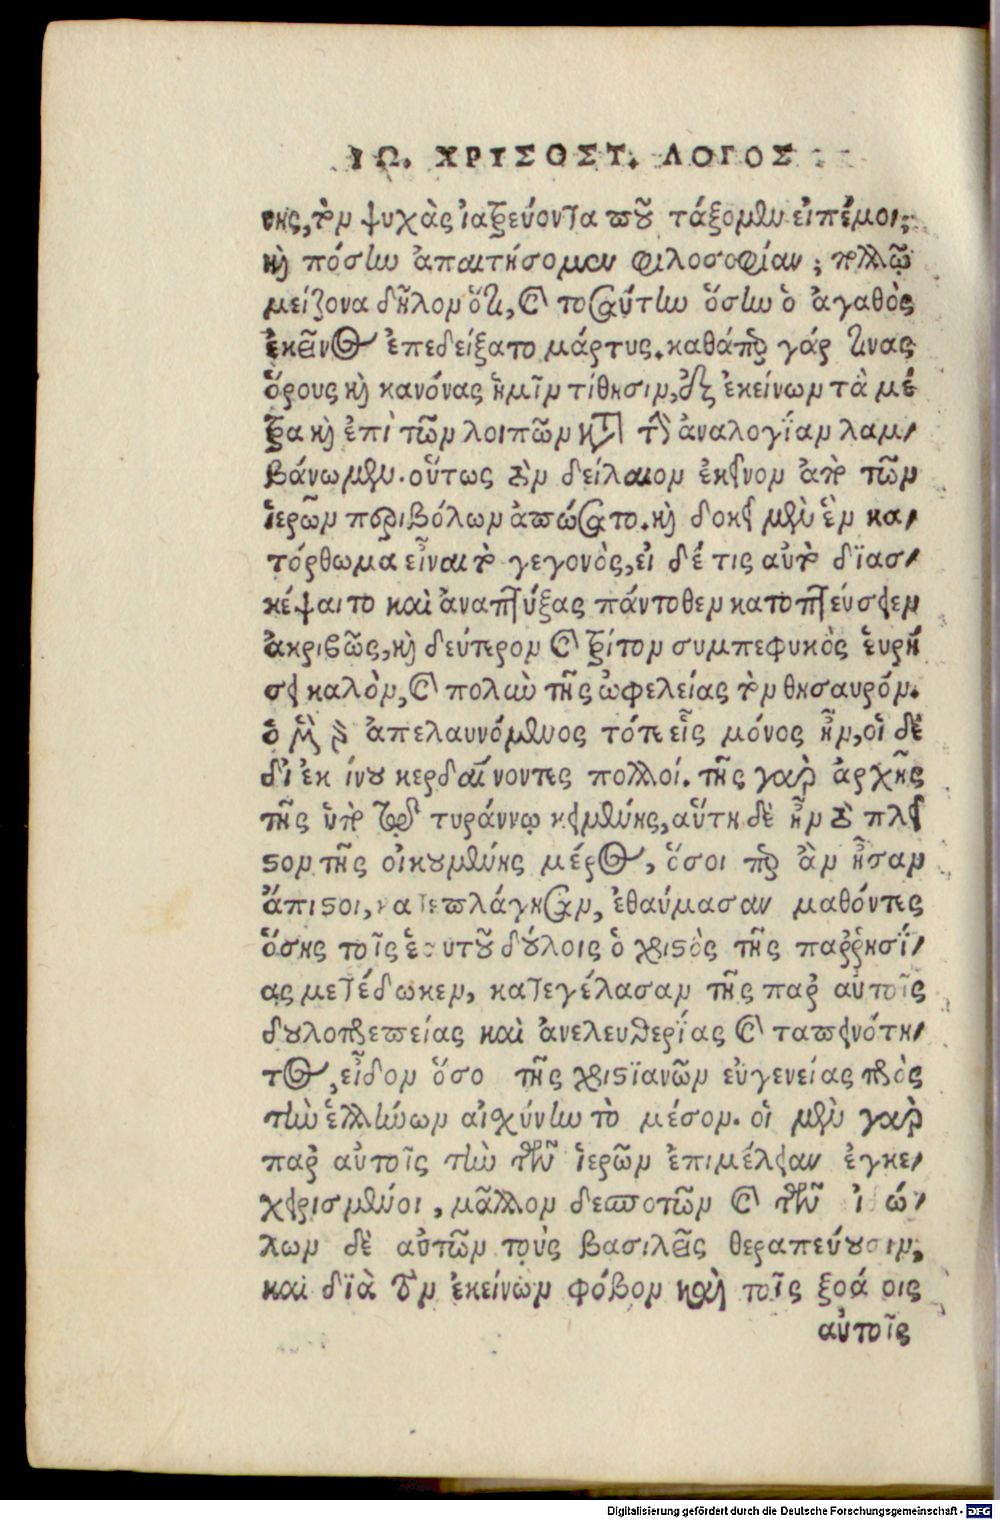 ΙΩ. ΧΡΥΣΟΣΤ. ΛΟΓΟΣ
της, τὸν ψυχὰς ἰατρεύοντα ποῦ τάξομεν εἰπέ μοι;
καὶ πόσην ἀπαιτήσομεν φιλοσοφίαν; πολλῷ
μείζονα δῆλον ὅτι, καὶ τοσαύτην ὅσην ὁ ἀγαθὸς
ἐκεῖνος ἐπεδείξατο μάρτυς. καθάπερ γάρ τινας
ὅρους καὶ κανόνας ἡμῖν τίθησιν, ἀπ' ἐκείνων τὰ μέ
τρα καὶ ἐπὶ τῶν λοιπῶν κατὰ τὴν ἀναλογίαν λαμ-
βάνωμεν. οὕτως οὖν δείλαιον ἐκεῖνον ἀπὸ τῶν
ἱερῶν περιβόλων ἀπώσατο. καὶ δοκεῖ μὲν ἓν κα-
τόρθωμα εἶναι τὸ γεγονὸς, εἰ δέ τις αὐτὸ διασ-
κέψαιτο καὶ ἀναπτύξας πάντοθεν κατοπτεύσειεν
ἀκριβῶς, καὶ δεύτερον καὶ τρίτον συμπεφυκὸς εὑρή
σει καλὸν, καὶ πολὺν τῆς ὠφελείας τὸν θησαυρόν.
ὁ μὲν γὰρ ἀπελαυνόμενος τότε εἷς μόνος ἦν, οἱ δὲ
δι' ἐκείνου κερδαίνοντες πολλοί. τῆς γὰρ ἀρχῆς
τῆς ὑπὸ τῷ τυράννῳ κειμένης, αὕτη δὲ ἦν τὸ πλεῖ
στον τῆς οἰκουμένης μέρος, ὅσοι περ ἂν ἦσαν
ἄπιστοι, κατεπλάγησαν, ἐθαύμασαν μαθόντες
ὅσης τοῖς ἑαυτοῦ δούλοις ὁ χριστὸς τῆς παῤῥησί-
ας μετέδωκεν, κατεγέλασαν τῆς παρ' αὐτοῖς
δουλοπρεπείας καὶ ἀνελευθερίας καὶ ταπεινότη-
τος, εἶδον ὅσον τῆς χριστιανῶν εὐγενείας πρὸς
τὴν ἑλλήνων αἰσχύνην τὸ μέσον. οἱ μὲν γὰρ
παρ' αὐτοῖς τὴν τῶν ἱερῶν ἐπιμέλειαν ἐγκε-
χειρισμένοι, μᾶλλον δεσποτῶν καὶ τῶν εἰδώ-
λων δὲ αὐτῶν τοὺς βασιλεῖς θεραπεύουσιν,
καὶ διὰ τὸν ἐκείνων φόβον καὶ τοῖς ξοάνοις
αὐτοῖς
Digitalisierung gefördert durch die Deutsche Forschungsgemeinschaft - DFG